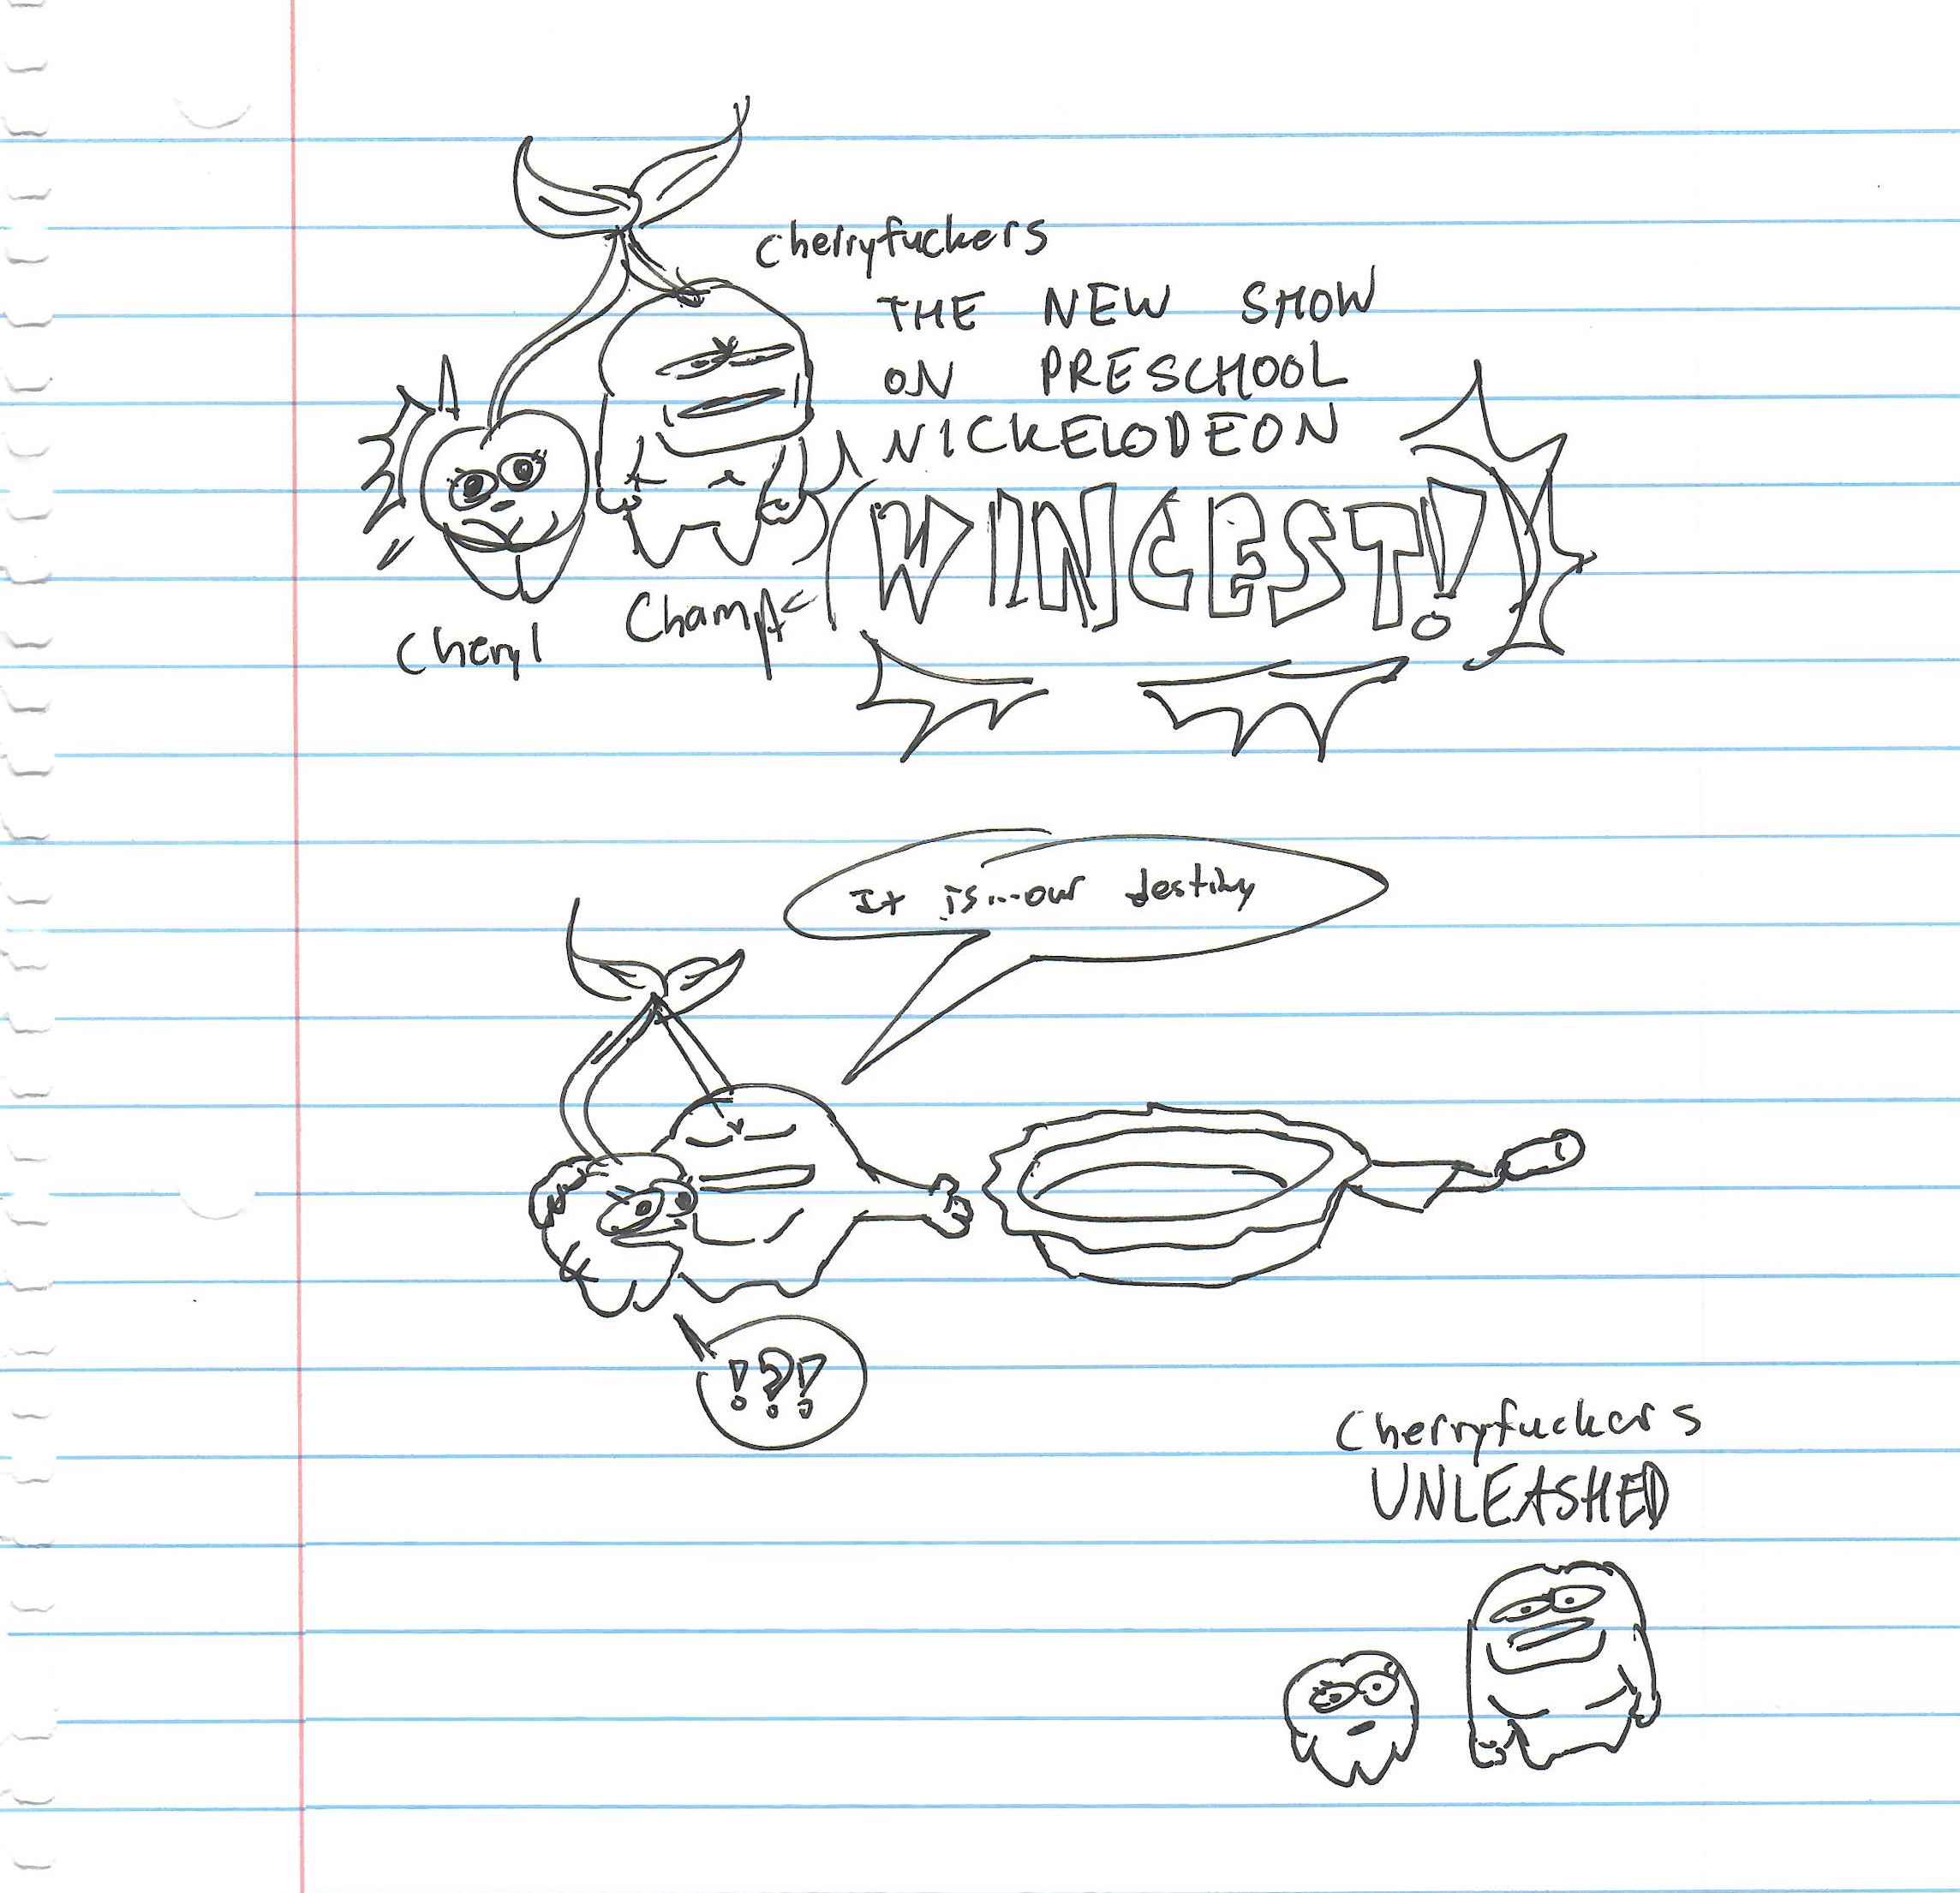 Cherryfuckers
THE NEW SHOW
ON PRESCHOOL
NICKELODEON
WINCEST!
Cheryl
Champ
It is...our destiny
!?!
Cherryfuckers
UNLEASHED